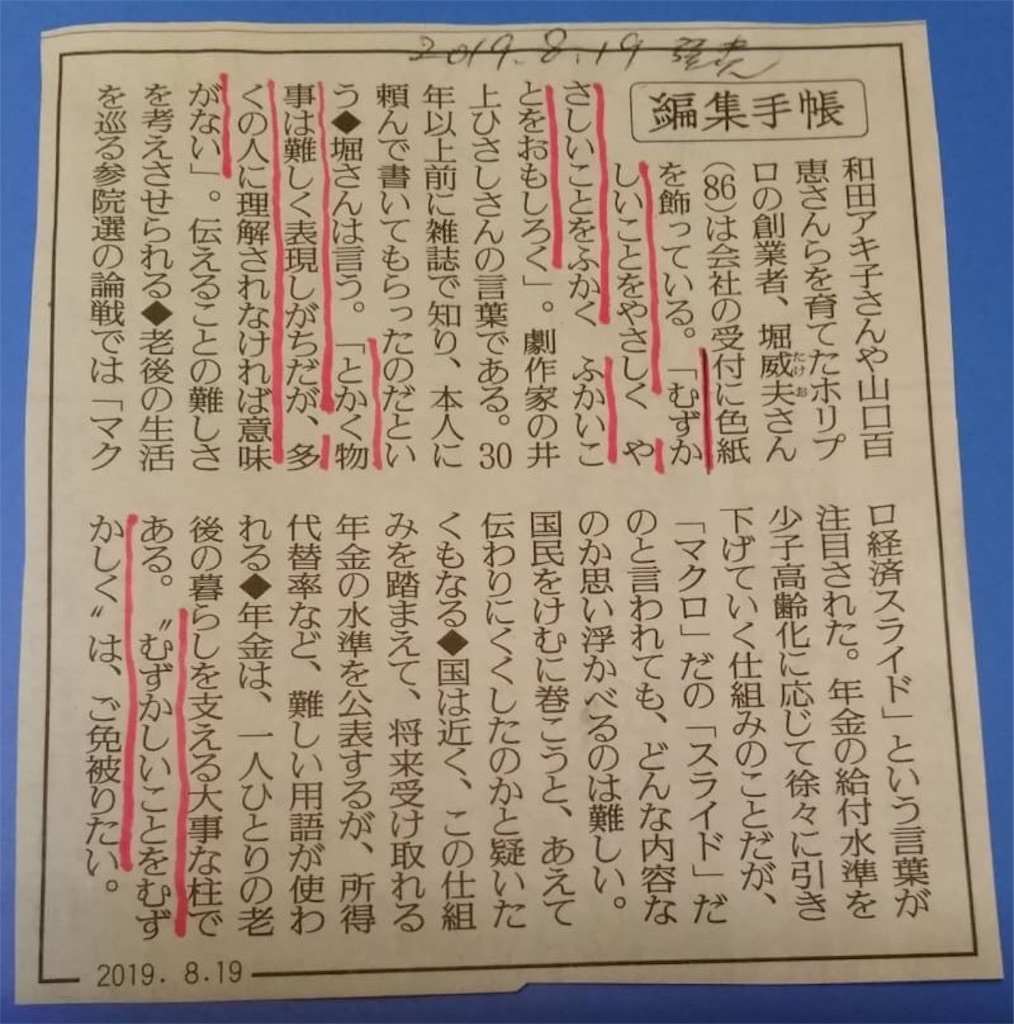 2019.8.19
編集手帳
和田アキ子さんや山口百
恵さんらを育てたホリプ
ロの創業者、堀威夫さん
たけお
(86)は会社の受付に色紙
を飾っている。「むずか
しいことをやさしく　や
さしいことをふかく　ふかいこ
とをおもしろく」。劇作家の井
上ひさしさんの言葉である。30
年以上前に雑誌で知り、本人に
頼んで書いてもらったのだとい
う◆堀さんは言う。「とかく物
事は難しく表現しがちだが、多
くの人に理解されなければ意味
がない」。伝えることの難しさ
を考えさせられる◆老後の生活
を巡る参院選の論戦では「マク
ロ経済スライド」という言葉が
注目された。年金の給付水準を
少子高齢化に応じて徐々に引き
下げていく仕組みのことだが、
「マクロ」だの「スライド」だ
のと言われても、どんな内容な
のか思い浮かべるのは難しい。
国民をけむに巻こうと、あえて
伝わりにくくしたのかと疑いた
くもなる◆国は近く、この仕組
みを踏まえて、将来受け取れる
年金の水準を公表するが、所得
代替率など、難しい用語が使わ
れる◆年金は、一人ひとりの老
後の暮らしを支える大事な柱で
ある。〝むずかしいことをむず
かしく〟は、ご免被りたい。
2019.8.19